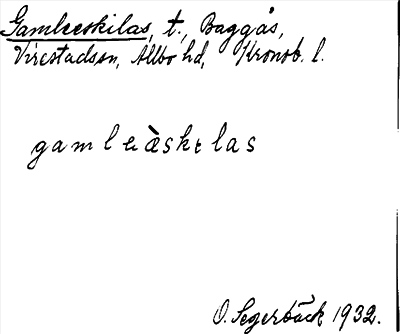 Gamleeskilas, t., Baggås,
Virestadssn, Allbo hd, Kronob. l.
gamleàskɩlas
O. Segerbäck 1932.